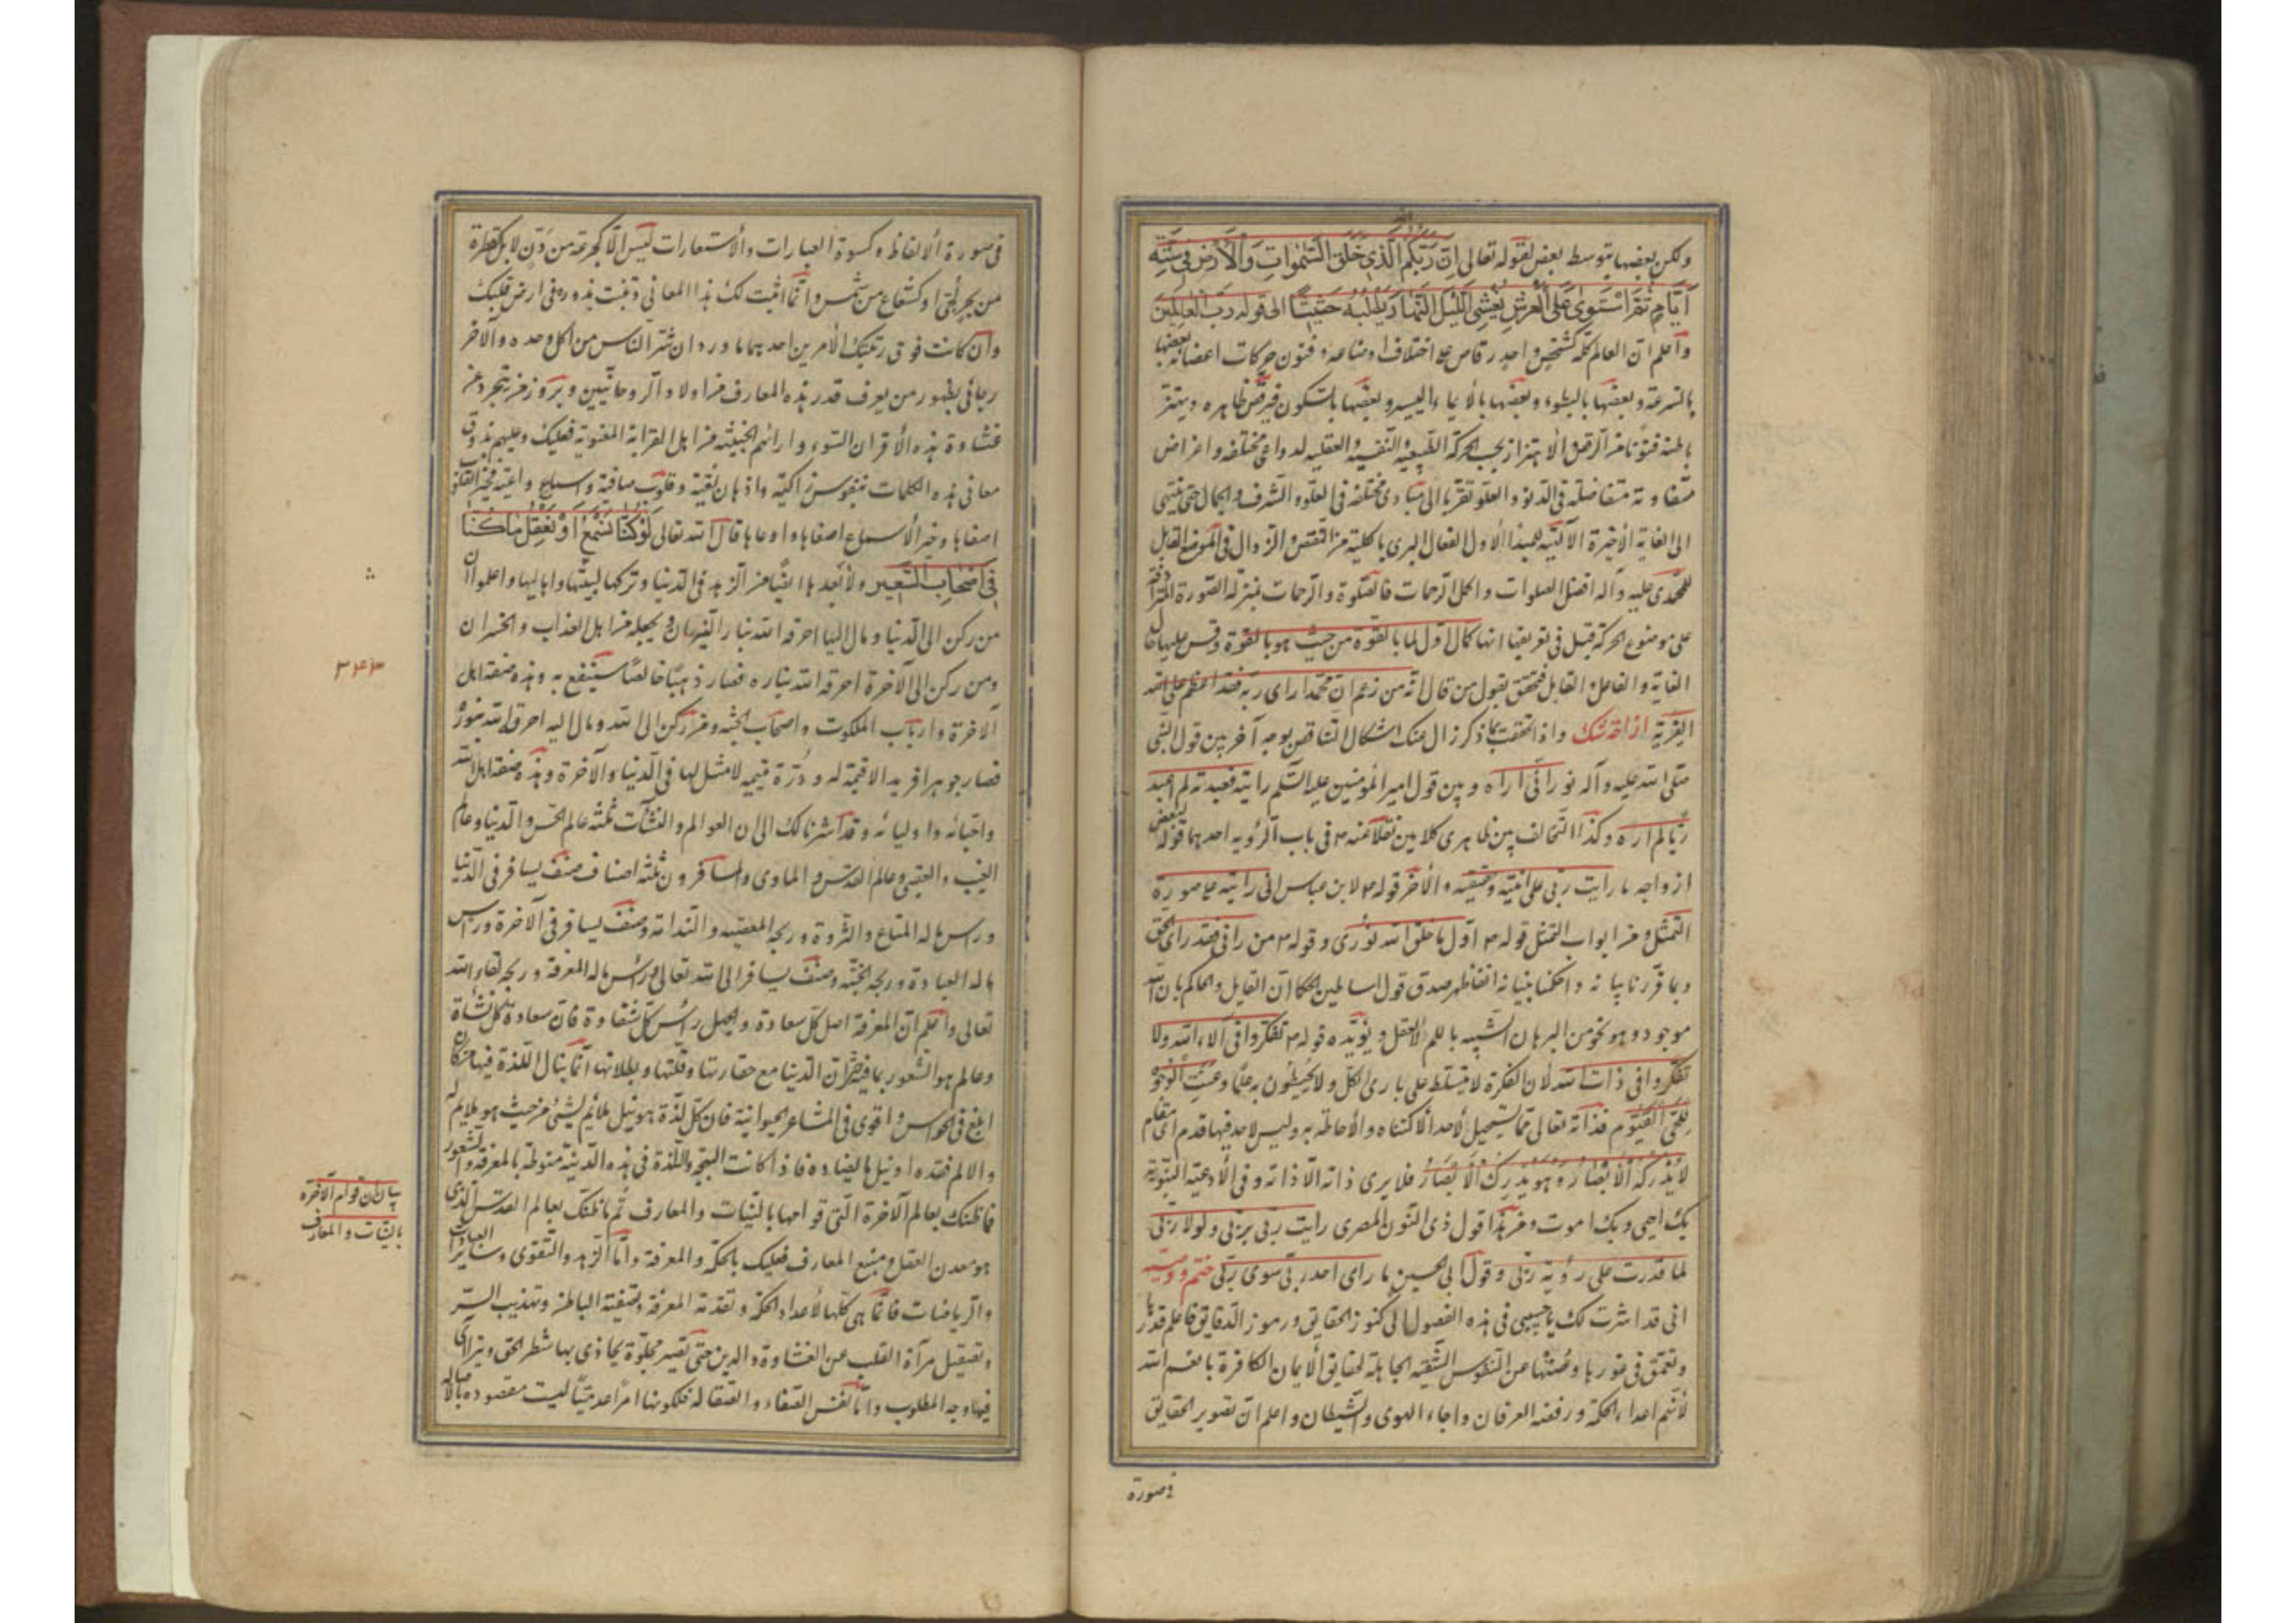 ولكن بعضها بتوسط بعض لقوله تعالى اِنَّ رَبَّكُمُ الَّذي خَلَقَ السَّمٰواتِ وَالْاَرْضَ في سِتَّةِ
اَيّامٍ ثُمَّ اسْتَوىٰ عَلَى الْعَرْشِ يُغْشِى اللَّيْلَ النَّهارَ يَطْلُبُهُ حَثيثًا الى قوله رَبُّ الْعالَمينَ
واعلم ان العالم كله كشخص واحد رقاص على اختلاف اوضاعه وفنون حركات اعضائه بعضها
بالسرعة وبعضها بالبطوء وبعضها بالايماء اليسير وبعضها بالسكون فيرقص ظاهره ويهتز
باطنه فنونا من الرقص والاهتزاز بحسب الحركة الطبيعية والنفسية والعقليه لدواعى مختلفه واغراض
متفاوتة متفاضلة فى الدنو والعلو تقربا الى مبادى مختلفه فى العلو والشرف والجمال حتى ينتهى
الى الغاية الاخيرة الالهية للمبدأ الاول الفعال البرى بالكلية من النقص والزوال فى الموضع القابل
المحمدى عليه وآله افضل الصلوات واكمل الرحمات فالصلوة والرحمات بمنزلة الصورة
على موضوع الحركة قيل فى تعريفها انها كمال اول لما بالقوة من حيث هو بالقوة وقس عليها حال
الغاية والفاعل والقابل فتحقق بقول من قال انه من زعم ان محمدا راى ربه فقد اعظم على الله
الفرية ازاحة شك واذا تحققت بما ذكر زال عنك اشكال التناقض بوجه آخر بين قول النبى
صلى الله عليه وآله نور انى اراه وبين قول امير المؤمنين عليه السلم رايته فعبدته لم اعبد
ربا لم اره وكذا التخالف بين ظاهرى كلامين نقلا عنه ص فى باب الرؤيه احدهما قوله لبعض
ازواجه ما رايت ربى على انيته وحقيقته والآخر قوله ص لابن عباس انى رايته على صورة
التمثل ومن ابواب التمثل قوله ص اول ما خلق الله نورى وقوله ص من رانى فقد راى الحق
وبما قررنا بيانه واحكمنا بنيانه انفا ظهر صدق قول اساطين الحكما ان القايل والحاكم بان الله
موجود هو نحو من البرهان الشبيه باللم لا العقل ويؤيده قوله ص تفكروا فى آلاء الله ولا
تفكروا فى ذات الله لان الفكرة لا يتسلط على بارى الكل ولا يحيطون به علما وعنت الوجوه
للحى القيوم فذاته تعالى مما يستحيل لاحد الاكتناه والاحاطة به وليس لاحد فيها قدم اى مقام
لا يُدْرِكُهُ الْاَبْصارُ وَهُوَ يُدْرِكُ الْاَبْصارَ فلا يرى ذاته الا ذاته وفى الادعية النبوية
بك احيى وبك اموت ومن هذا قول ذى النون المصرى رايت ربى بربى ولولا ربى
لما قدرت على رؤية ربى وقول ابى الحسين ما راى احد ربى سوى ربى ختم ووصية
انى قد اشرت لك يا حبيبى فى هذه الفصول الى كنوز الحقايق ورموز الدقايق فاعلم قدرها
وتعمق فى غورها وصنها عن النفوس الشقية الجاهلة لحقايق الايمان الكافرة بانعم الله
لانهم اعداء الحكمة ورفضة العرفان واحباء الهوى والشيطان واعلم ان تصوير الحقايق
فى صورة
فى صورة الالفاظ وكسوة العبارات والاستعارات ليس الا كجرعة من دن لا بل كقطرة
من بحر لجى او كشعاع من شمس وانما اثبت لك هذا المعانى ونبت بذوره فى ارض قلبك
وان كانت فوق رتبتك لامرين احدهما ما ورد ان شر الناس من اكل وحده والآخر
رجائى بظهور من يعرف قدر هذه المعارف من اولاد الروحانيين وبروز من يتجرد عن
غشاوة هذه الاقران السوء واراءهم الخبيثه من اهل القرابة المعنوية فعليك وعليهم بذوق
معانى هذه الكلمات بنفوس زاكية واذهان نقية وقلوب صافية واسماع واعية فخير القلوب
اصفاها وخير الاسماع اصغاها واوعاها قال الله تعالى لَوْ كُنّا نَسْمَعُ اَوْ نَعْقِلُ ما كُنّا
في اَصْحابِ السَّعيرِ ولابد ايضا من الزهد فى الدنيا وتركها لبيتها واهاليها واعلموا ان
من ركن الى الدنيا ومال اليها احرقه الله بنار النيران ويجعله من اهل العذاب والخسران
ومن ركن الى الآخرة احرقه الله بناره فصار ذهبا خالصا ينتفع به وهذه صفة اهل
الآخرة وارباب الملكوت واصحاب الجنه ومن ركن الى الله ومال اليه احرقه الله بنوره
فصار جوهرا فريدا لا قيمة له ودرة يتيمه لا مثل لها فى الدنيا والآخرة وهذه صفة اهل الله
واحبائه واوليائه وقد اشرنا لك الى ان العوالم والنشآت ثلثة عالم الحس والدنيا وعالم
الغيب والعقبى وعالم القدس والماوى والمسافرون ثلثة اصناف صنف يسافر فى الدنيا
وراس ماله المتاع والثروة وربحه المعصية والندامة وصنف يسافر فى الآخرة وراس
ماله العبادة وربحه الجنة وصنف يسافر الى الله تعالى وراس ماله المعرفة وربحه لقاء الله
تعالى واعلم ان المعرفة اصل كل سعادة والجهل راس كل شقاوة فان سعادة كل نشاة
وعالم هو الشعور بما فيه ان الدنيا مع حقارتها وقلتها وبطلانها انما ينال اللذة فيها من كان
ابلغ فى الحواس واقوى فى المشاعر الحيوانية فان كل لذة هو نيل ملائم لشئ من حيث هو يلايم له
والالم فقده او نيل ما يضاده فاذا كانت البهجة واللذة فى هذه الدنية منوطة بالمعرفة والشعور
فما ظنك بعالم الآخرة التى قوامها بالنيات والمعارف ثم ما ظنك بعالم القدس الذى
هو معدن العقل ومنبع المعارف فعليك بالحكمة والمعرفة واما الزهد والتقوى وسائر العبادات
والرياضات فانما هى كلها لاعداد الحكمة وتقدمة المعرفة وتصفية الباطن وتهذيب السر
وتصقيل مرآة القلب عن الغشاوة والرين حتى تصير مجلوة يحاذى بها شطر الحق ويتراى
فيها وجه المطلوب واما نفس الصفاء والصقالة فلكونها امرا عدميا ليست مقصوده بالاصاله
بيان ان قوام الآخرة
بالنيات والمعارف